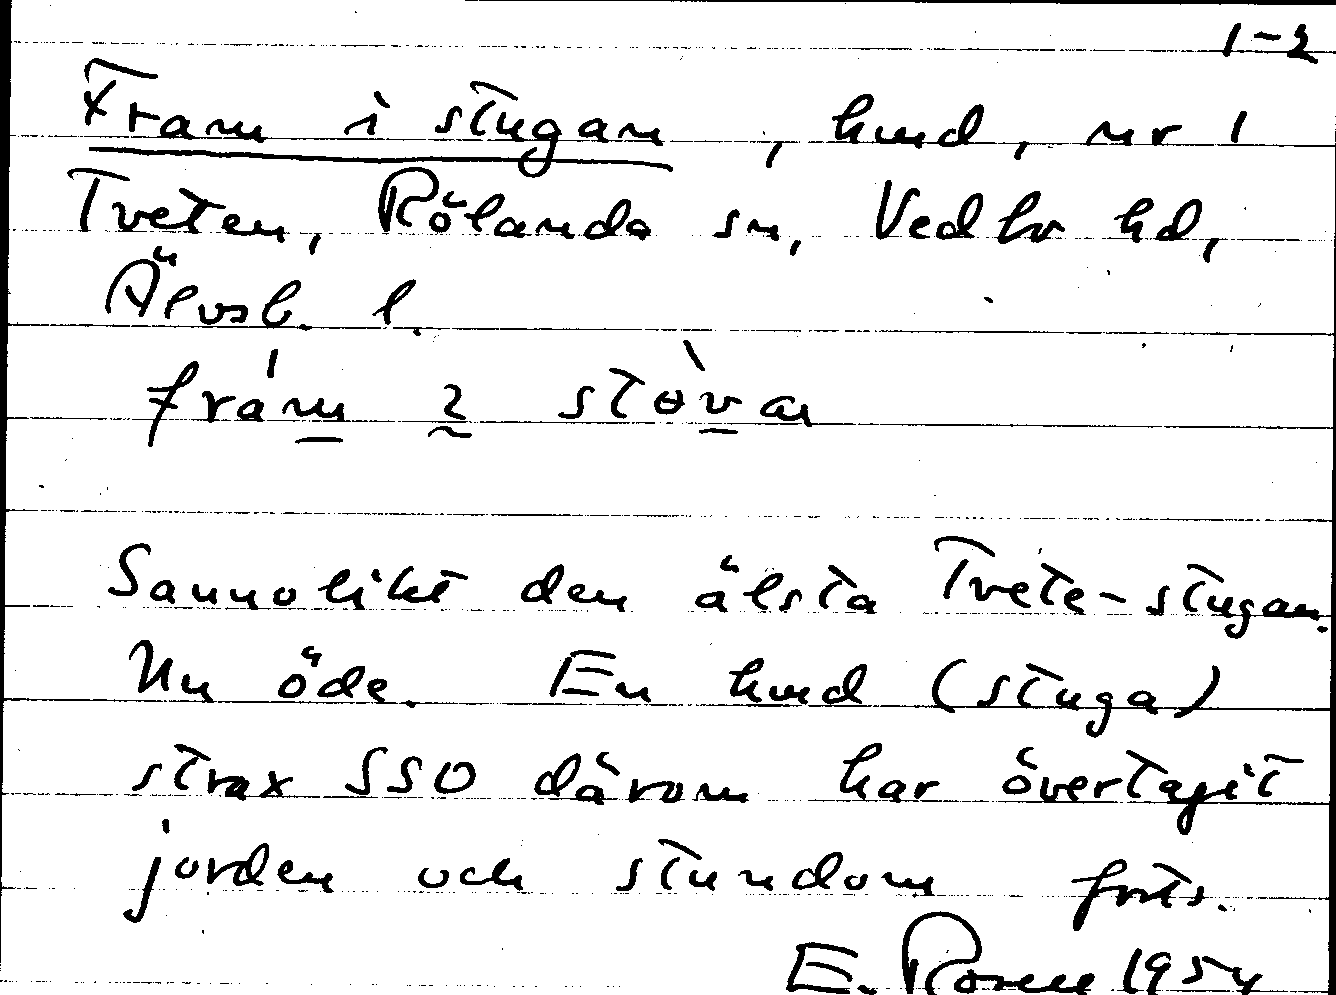 1-2
Fram i stugan, hmd, nr 1
Tveten, Rölanda sn, Vedbo hd,
Älvsb. l.
fràm ɩ stòvan
Sannolikt den älsta Tvete-stugan.
Nu öde. En hmd (stuga)
strax SSO därom har övertagit
jorden och stundom forts.
E. Rosell 1954